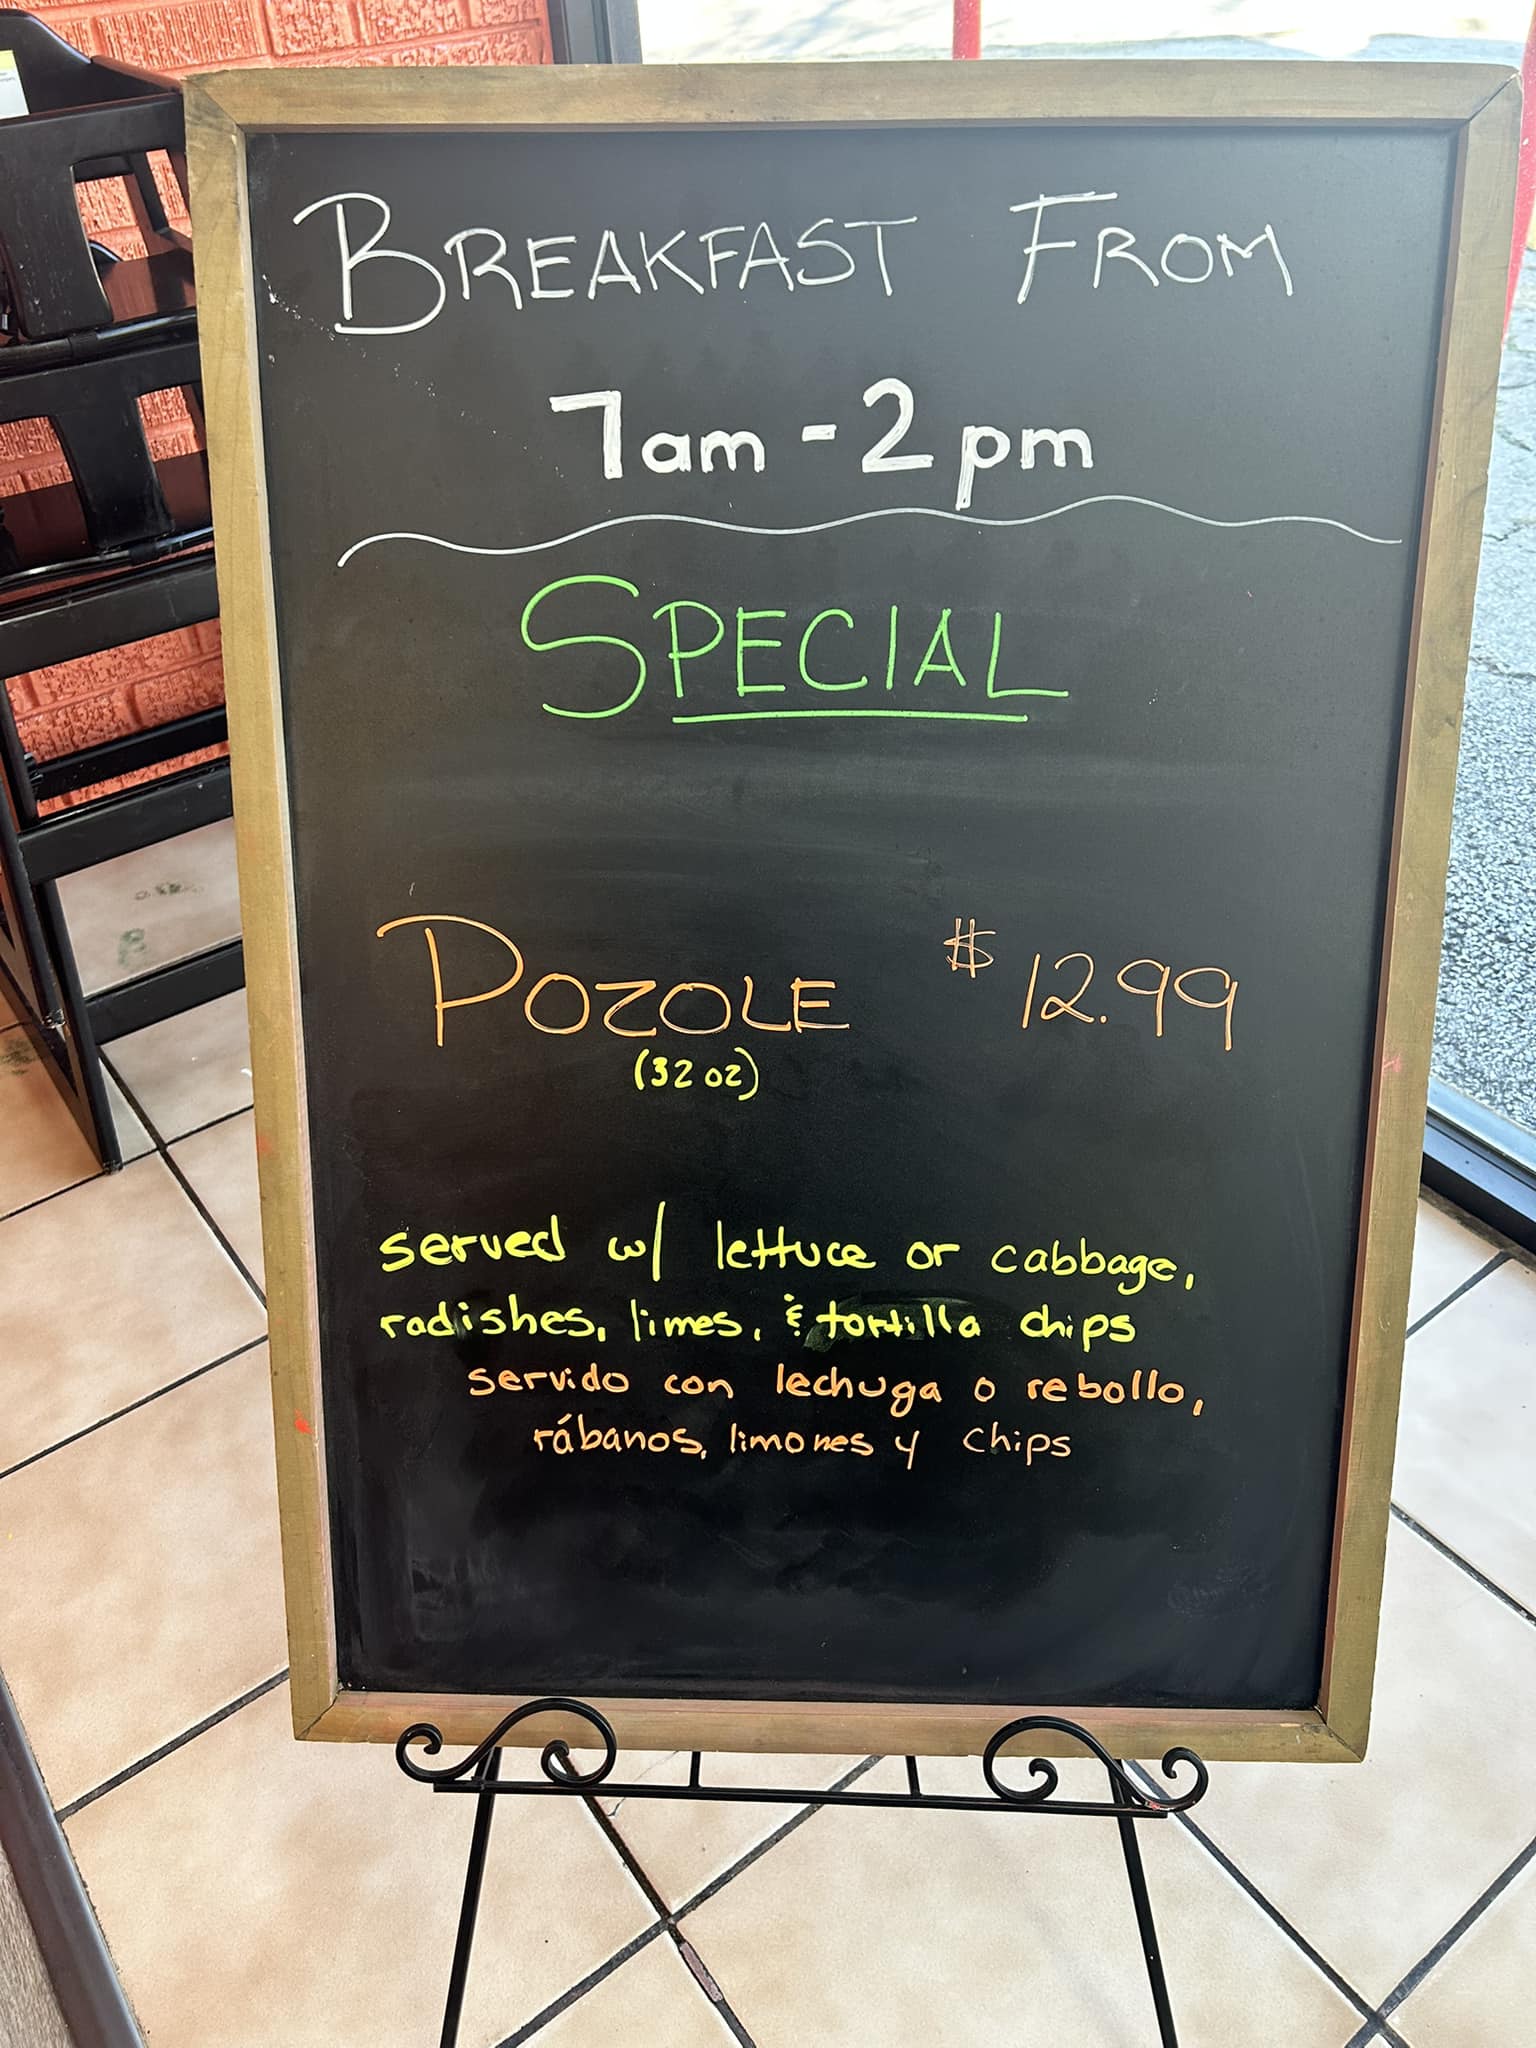 BREAKFAST FROM
7am - 2pm
SPECIAL
POZOLE $12.99
(32 oz)
served w/ lettuce or cabbage,
radishes, limes, & tortilla chips
servido con lechuga o rebollo,
rábanos, limones y chips